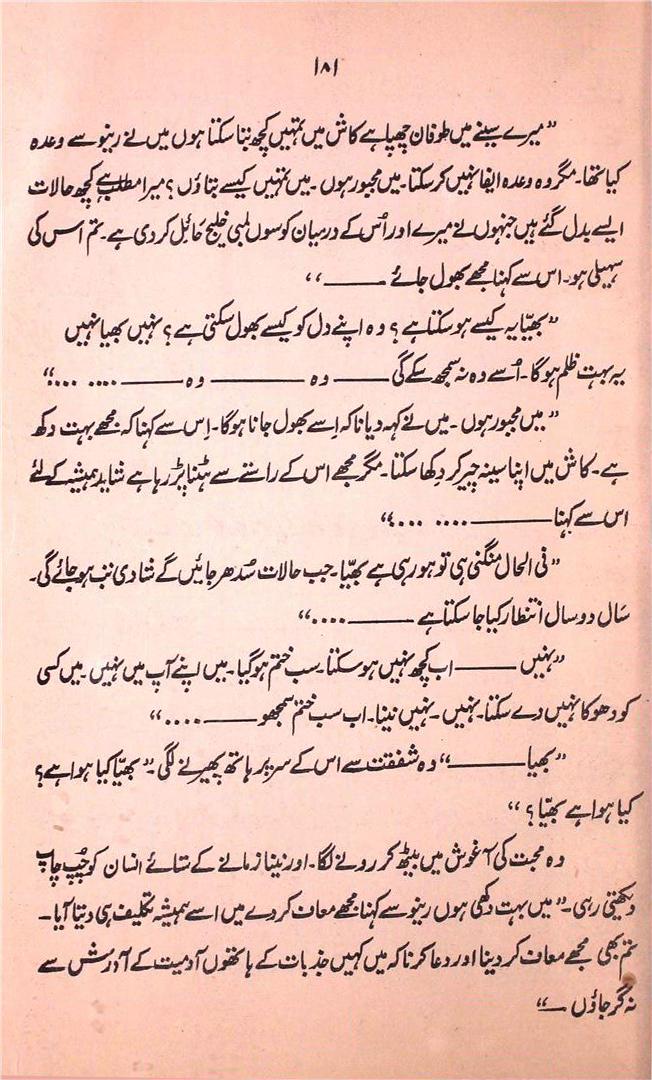 ۱۸۱
”میرے سینے میں طوفان چھپا ہے کاش میں تمہیں کچھ بتا سکتا ہوں میں نے رینو سے وعدہ
کیا تھا۔ مگر وہ وعدہ ایفا نہیں کر سکتا۔ میں مجبور ہوں۔ میں تمہیں کیسے بتاؤں؟ میرا مطلب ہے کچھ حالات
ایسے بدل گئے ہیں جنہوں نے میرے اور اُس کے درمیان کوسوں لمبی خلیج حائل کر دی ہے۔ تم اس کی
سہیلی ہو۔ اس سے کہنا مجھے بھول جائے ——— ،،
”بھیّا یہ کیسے ہو سکتا ہے؟ وہ اپنے دل کو کیسے بھول سکتی ہے؟ نہیں بھیا نہیں
یہ بہت ظلم ہوگا۔ اُسے وہ نہ سمجھ سکے گی ——— وہ ——— وہ ——— .... ....“
”میں مجبور ہوں۔ میں نے کہہ دیا نا کہ اِسے بھول جانا ہوگا۔ اِس سے کہنا کہ مجھے بہت دکھ
ہے۔ کاش میں اپنا سینہ چیر کر دکھا سکتا۔ مگر مجھے اس کے راستے سے ہٹنا پڑ رہا ہے شاید ہمیشہ کے لئے
اس سے کہنا ——— .... ....“
”فی الحال منگنی ہی تو ہو رہی ہے بھیّا۔ جب حالات سُدھر جائیں گے شادی تب ہو جائے گی۔
سال دو سال انتظار کیا جا سکتا ہے ——— ....“
”نہیں ——— اب کچھ نہیں ہو سکتا۔ سب ختم ہو گیا۔ میں اپنے آپ میں نہیں۔ میں کسی
کو دھوکا نہیں دے سکتا۔ نہیں۔ نہیں نینا۔ اب سب ختم سمجھو ——— ....“
”بھیا ———“ وہ شفقت سے اس کے سر پر ہاتھ پھیرنے لگی۔ ”بھیّا کیا ہوا ہے؟
کیا ہوا ہے بھیّا؟ “
وہ محبت کی آغوش میں بیٹھ کر رونے لگا۔ اور نینا زمانے کے ستائے انسان کو چُپ چاپ
دیکھتی رہی۔ ”میں بہت دکھی ہوں رینو سے کہنا مجھے معاف کر دے میں اسے ہمیشہ تکلیف ہی دیتا آیا۔
تم بھی مجھے معاف کر دینا اور دعا کرنا کہ میں کہیں جذبات کے ہاتھوں آدمیت کے آدرش سے
نہ گر جاؤں —“